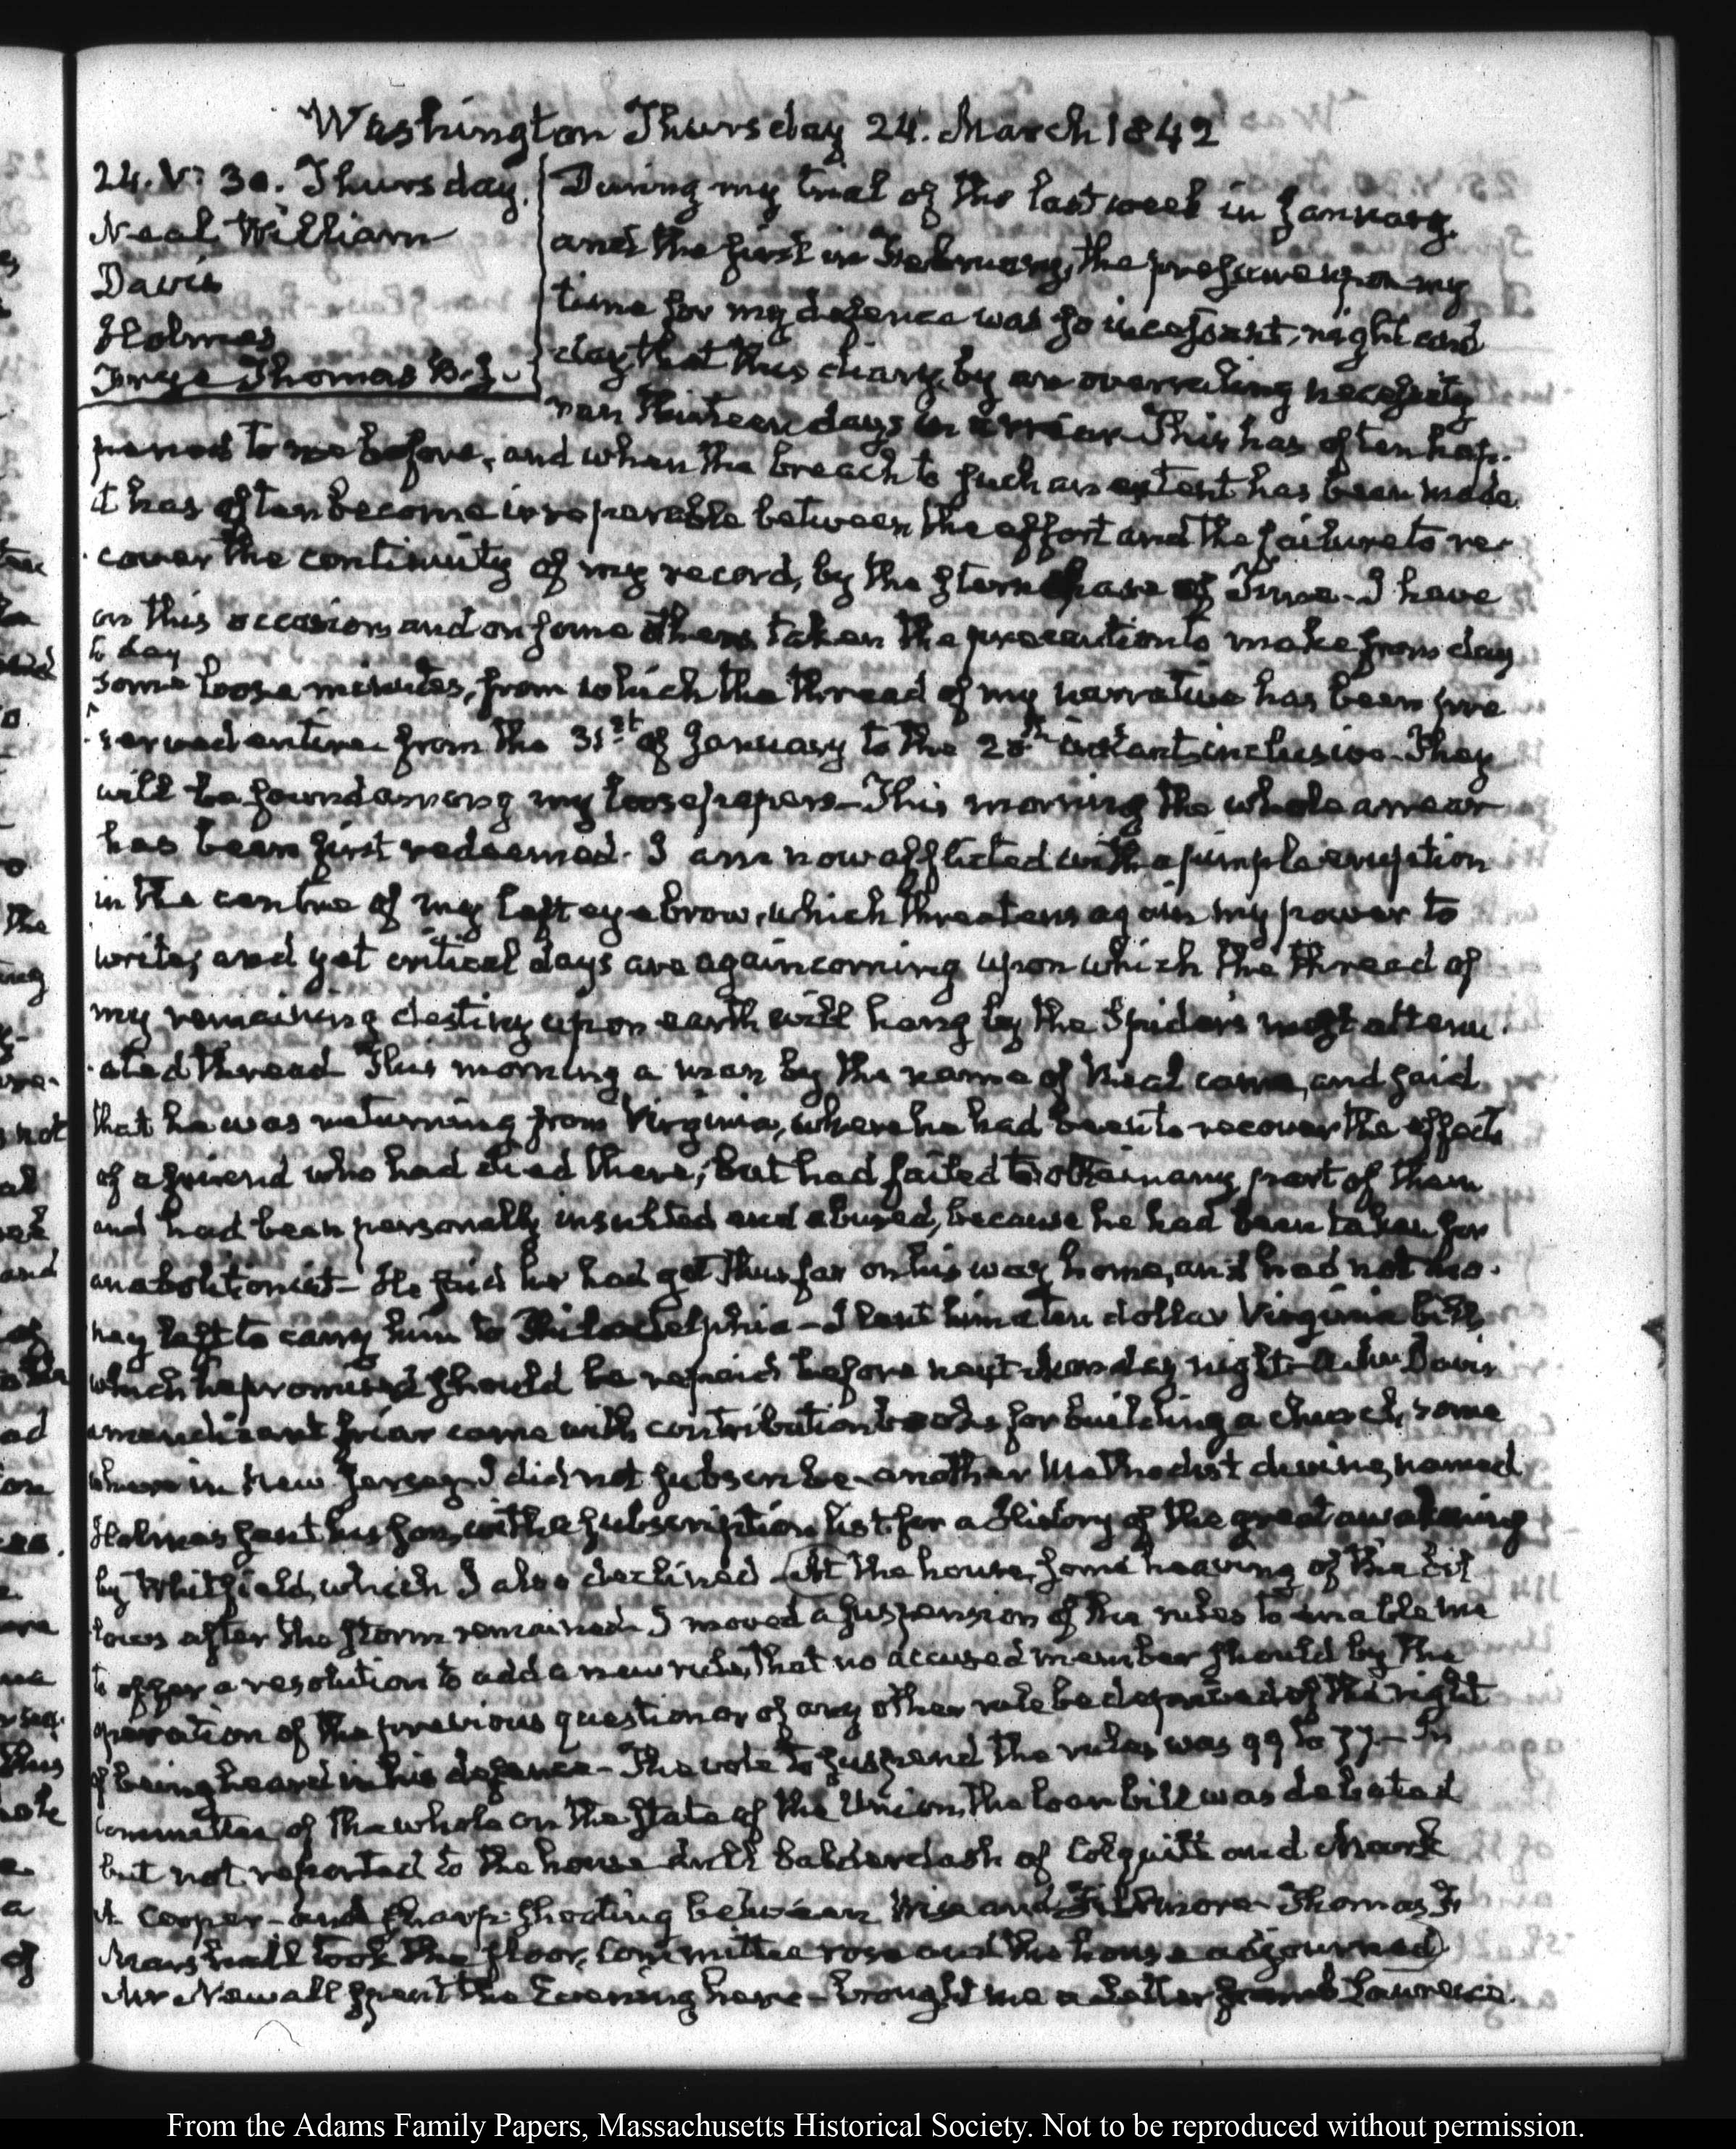 Washington Thursday 24. March 1842
24. V: 30. Thursday.
Neal William
Davis
Holmes
Thomas B. J.
During my trial of the last week in January.
and the first in February, the pressure upon my
time for my defence was so incessant, night and
day, that this diary, by an overruling necessity
ran thirteen days in arrear. This has often hap-
pened to me before, and when the breach to such an extent has been made
it has often become irreparable between the effort and the failure to re-
cover the continuity of my record, by the stern chase of Time. I have
on this occasion, and on some others taken the precaution to make from day
to day
some loose minutes, from which the thread of my narrative has been pre
served entire from the 31st of January to the 20th instant inclusive. They
will be found among my loose papers. This morning the whole arrear
has been first redeemed. I am now afflicted with a pimple eruption
in the centre of my left eyebrow, which threatens again my power to
write, and yet critical days are again coming upon which the thread of
my remaining destiny upon earth will hang by the Spider's most attenu-
ated thread. This morning a man by the name of Neal came, and said
that he was returning from Virginia, where he had been to recover the effects
of a friend who had died there; but had failed to obtain any part of them
and had been personally insulted and abused, because he had been taken for
an abolitionist. He said he had got thus far on his way home, and had not mo-
ney left to carry him to Philadelphia. I lent him a ten dollar Virginia bill,
which he promised should be repaid before next Sunday night. A Mr Davis
a mendicant friar came with contribution books for building a church, some
where in New Jersey. I did not subscribe. another Methodist divine, named
Holmes sent his son, with a subscription list for a History of the great awakening
by Whitfield, which I also declined. At the house, some heaving of the bil
lows after the storm remained. I moved a suspension of the rules to enable me
to offer a resolution to add a new rule, that no accused member should by the
operation of the previous question or of any other rule be deprived of the right
of being heard in his defence. The vote to suspend the rules was 99 to 77. In
Committee of the whole on the state of the Union, the loan bill was debated
but not reported to the house. dull balderdash of Colquitt and Mark
A Cooper. and sharp-shooting between Wise and Fillmore. Thomas F.
Marshall took the floor, Committee rose and the house adjourned.
Mr Newall spent the Evening here. brought me a Letter from Lawrence.
From the Adams Family Papers, Massachusetts Historical Society. Not to be reproduced without permission.